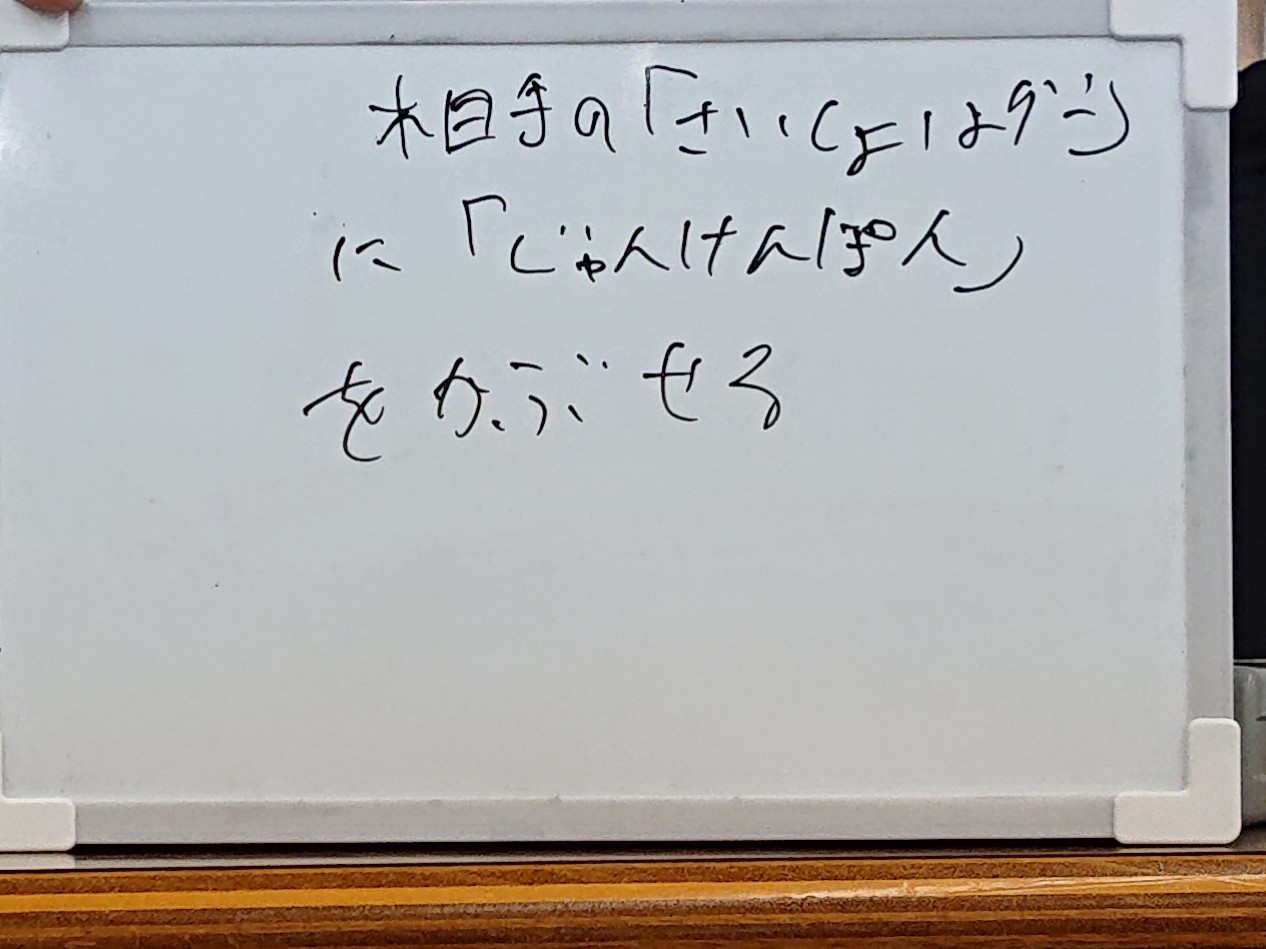 相手の「さいしょはグー」
に「じゃんけんぽん」
をかぶせる